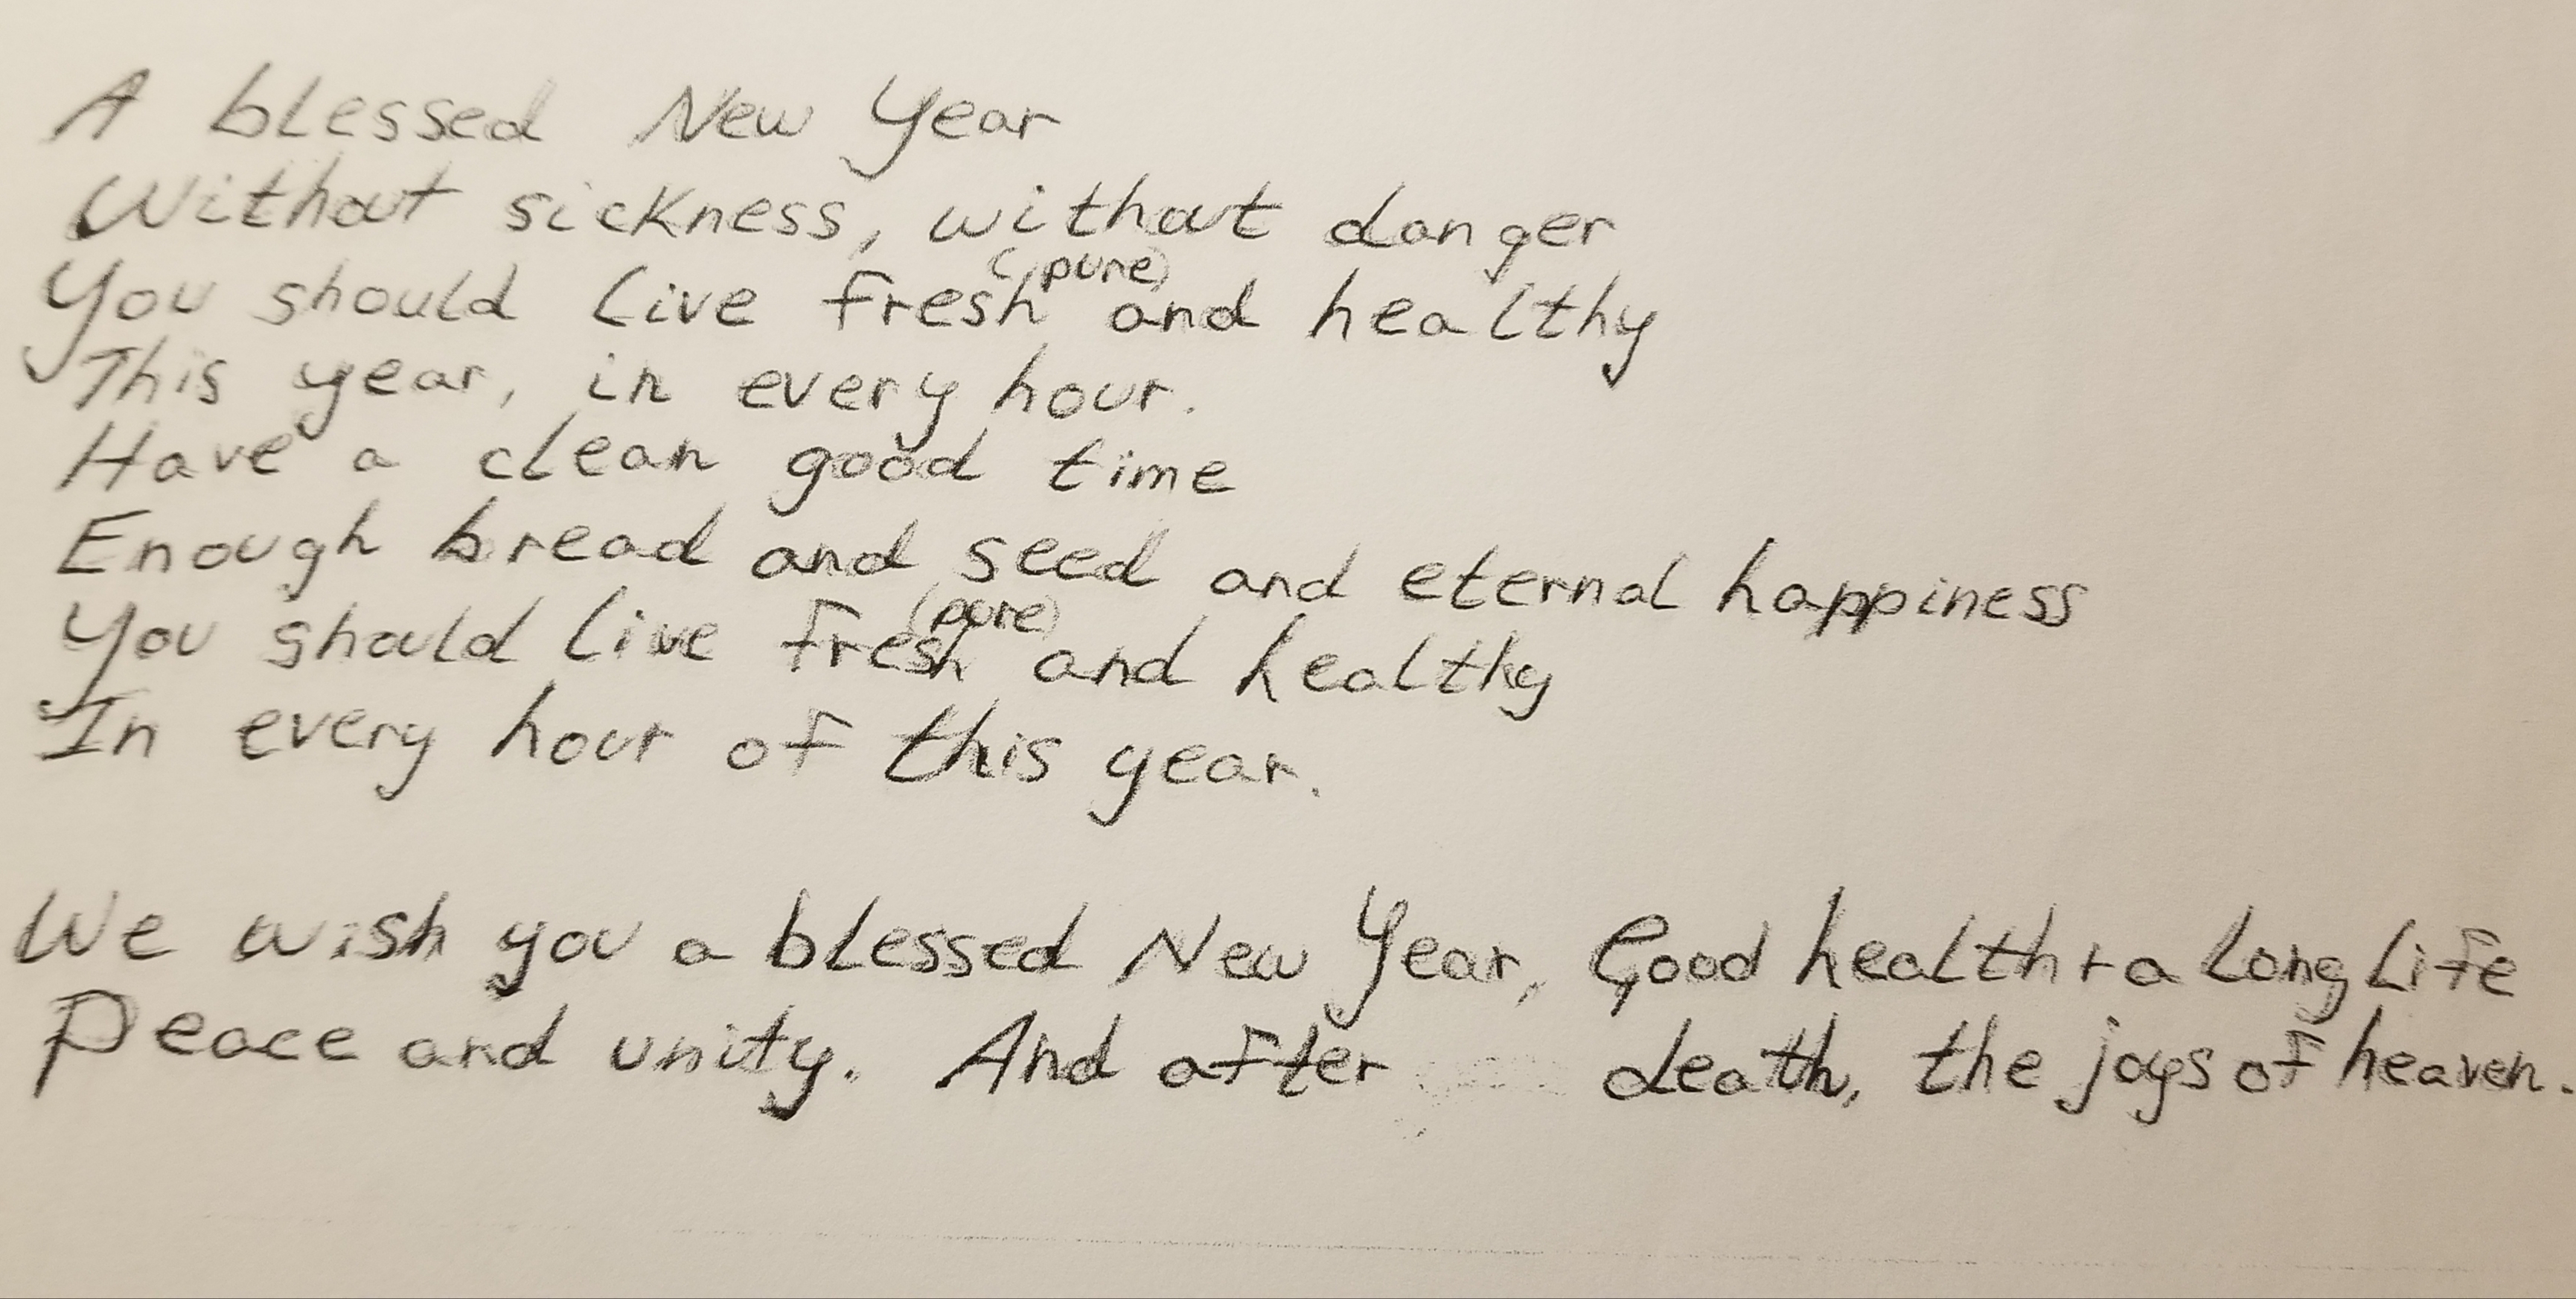 A blessed New Year
Without sickness, without danger
You should live fresh (pure) and healthy
This year, in every hour.
Have a clean good time
Enough bread and seed and eternal happiness
You should live fresh (pure) and healthy
In every hour of this year.
We wish you a blessed New Year, Good health + a long life
Peace and unity. And after death, the joys of heaven.